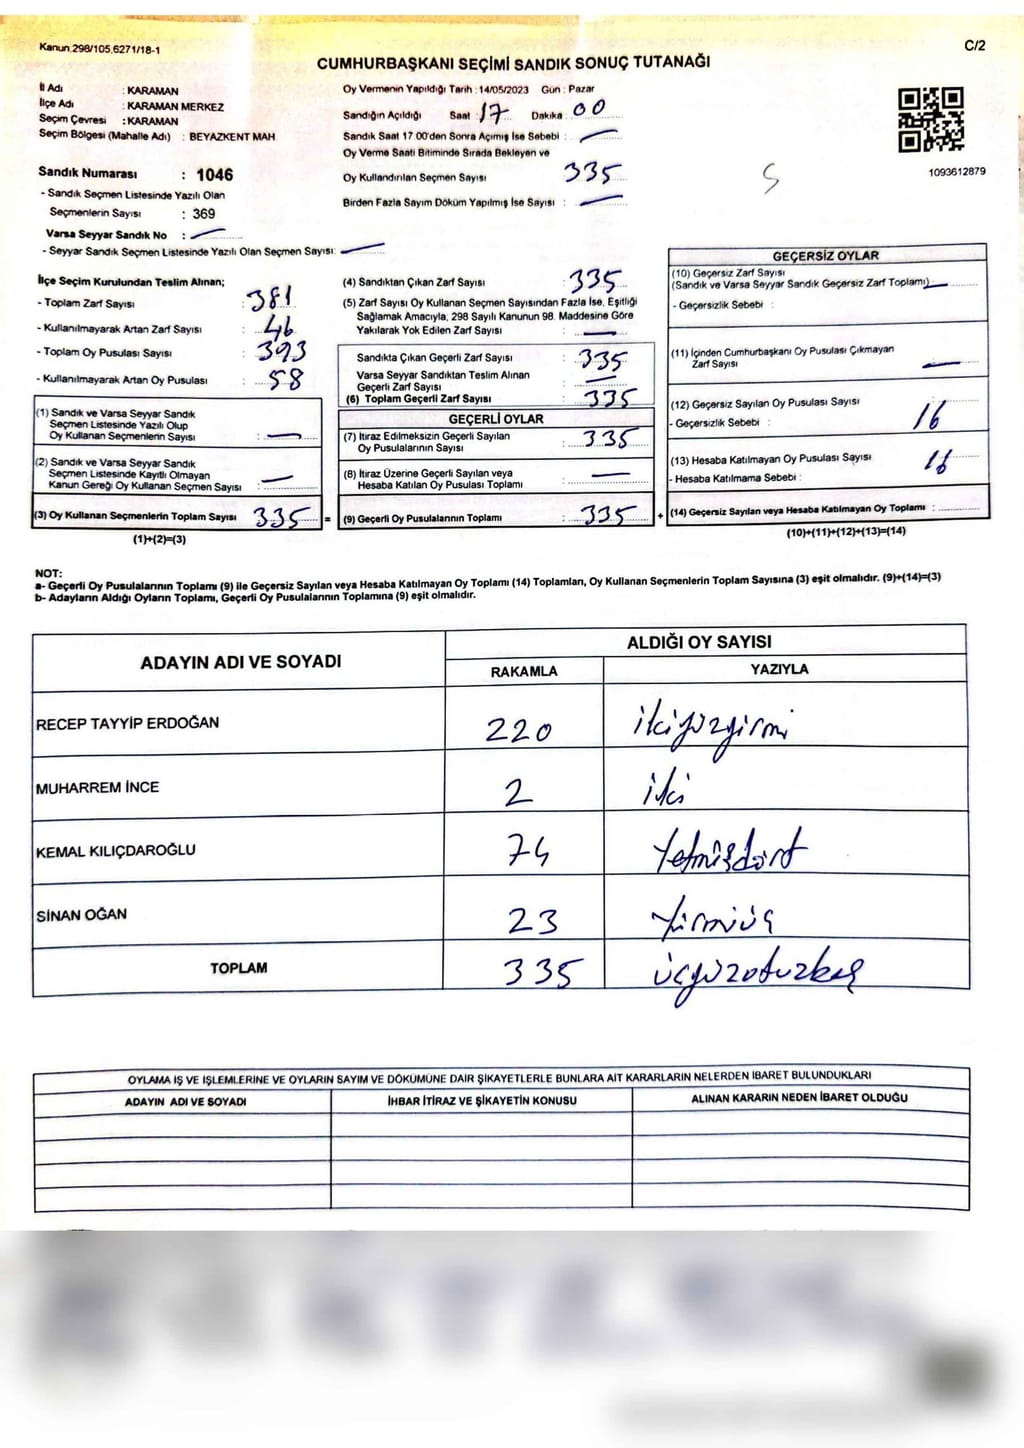 Kanun.298/105,6271/18-1
C/2
CUMHURBAŞKANI SEÇİMİ SANDIK SONUÇ TUTANAĞI
İl Adı : KARAMAN
İlçe Adı : KARAMAN MERKEZ
Seçim Çevresi : KARAMAN
Seçim Bölgesi (Mahalle Adı) : BEYAZKENT MAH.
Sandık Numarası : 1046
- Sandık Seçmen Listesinde Yazılı Olan
Seçmenlerin Sayısı : 369
Varsa Seyyar Sandık No :
- Seyyar Sandık Seçmen Listesinde Yazılı Olan Seçmen Sayısı:
Oy Vermenin Yapıldığı Tarih :14/05/2023 Gün : Pazar
Sandığın Açıldığı Saat : 17 Dakika : 00
Sandık Saat 17.00'den Sonra Açımış İse Sebebi :
Oy Verme Saati Bitiminde Sırada Bekleyen ve
Oy Kullandırılan Seçmen Sayısı : 335
Birden Fazla Sayım Döküm Yapılmış İse Sayısı :
S
1093612879
İlçe Seçim Kurulundan Teslim Alınan;
- Toplam Zarf Sayısı : 381
- Kullanılmayarak Artan Zarf Sayısı : 46
- Toplam Oy Pusulası Sayısı : 393
- Kullanılmayarak Artan Oy Pusulası : 58
(1) Sandık ve Varsa Seyyar Sandık
Seçmen Listesinde Yazılı Olup
Oy Kullanan Seçmenlerin Sayısı :
(2) Sandık ve Varsa Seyyar Sandık
Seçmen Listesinde Kayıtlı Olmayan
Kanun Gereği Oy Kullanan Seçmen Sayısı :
(3) Oy Kullanan Seçmenlerin Toplam Sayısı 335 =
(1)+(2)=(3)
(4) Sandıktan Çıkan Zarf Sayısı : 335
(5) Zarf Sayısı Oy Kullanan Seçmen Sayısından Fazla İse, Eşitliği
Sağlamak Amacıyla, 298 Sayılı Kanunun 98. Maddesine Göre
Yakılarak Yok Edilen Zarf Sayısı :
Sandıkta Çıkan Geçerli Zarf Sayısı : 335
Varsa Seyyar Sandıktan Teslim Alınan
Geçerli Zarf Sayısı :
(6) Toplam Geçerli Zarf Sayısı : 335
GEÇERLİ OYLAR
(7) İtiraz Edilmeksizin Geçerli Sayılan
Oy Pusulalarının Sayısı : 335
(8) İtiraz Üzerine Geçerli Sayılan veya
Hesaba Katılan Oy Pusulası Toplamı :
(9) Geçerli Oy Pusulalarının Toplamı : 335 +
GEÇERSİZ OYLAR
(10) Geçersiz Zarf Sayısı
(Sandık ve Varsa Seyyar Sandık Geçersiz Zarf Toplamı)
- Geçersizlik Sebebi :
(11) İçinden Cumhurbaşkanı Oy Pusulası Çıkmayan
Zarf Sayısı
(12) Geçersiz Sayılan Oy Pusulası Sayısı :
- Geçersizlik Sebebi : 16
(13) Hesaba Katılmayan Oy Pusulası Sayısı : 16
- Hesaba Katılmama Sebebi :
(14) Geçersiz Sayılan veya Hesaba Katılmayan Oy Toplamı :
(10)+(11)+(12)+(13)=(14)
NOT:
a- Geçerli Oy Pusulalarının Toplamı (9) ile Geçersiz Sayılan veya Hesaba Katılmayan Oy Toplamı (14) Toplamları, Oy Kullanan Seçmenlerin Toplam Sayısına (3) eşit olmalıdır. (9)+(14)=(3)
b- Adayların Aldığı Oyların Toplamı, Geçerli Oy Pusulalarının Toplamına (9) eşit olmalıdır.
ADAYIN ADI VE SOYADI ALDIĞI OY SAYISI
RAKAMLA YAZIYLA
RECEP TAYYİP ERDOĞAN 220 ikiyüzyirmi
MUHARREM İNCE 2 iki
KEMAL KILIÇDAROĞLU 74 Yetmişdört
SİNAN OĞAN 23 Yirmiüç
TOPLAM 335 üçyüzotuzbeş
OYLAMA İŞ VE İŞLEMLERİNE VE OYLARIN SAYIM VE DÖKÜMÜNE DAİR ŞİKAYETLERLE BUNLARA AİT KARARLARIN NELERDEN İBARET BULUNDUKLARI
ADAYIN ADI VE SOYADI İHBAR İTİRAZ VE ŞİKAYETİN KONUSU ALINAN KARARIN NEDEN İBARET OLDUĞU